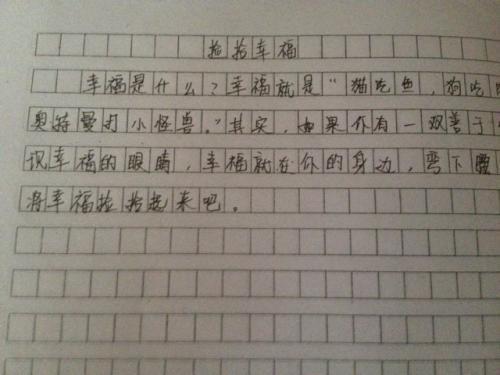 捡拾幸福
幸福是什么？幸福就是“猫吃鱼，狗吃
奥特曼打小怪兽。”其实，如果你有一双善于
现幸福的眼睛，幸福就在你的身边，弯下腰
将幸福捡拾起来吧。